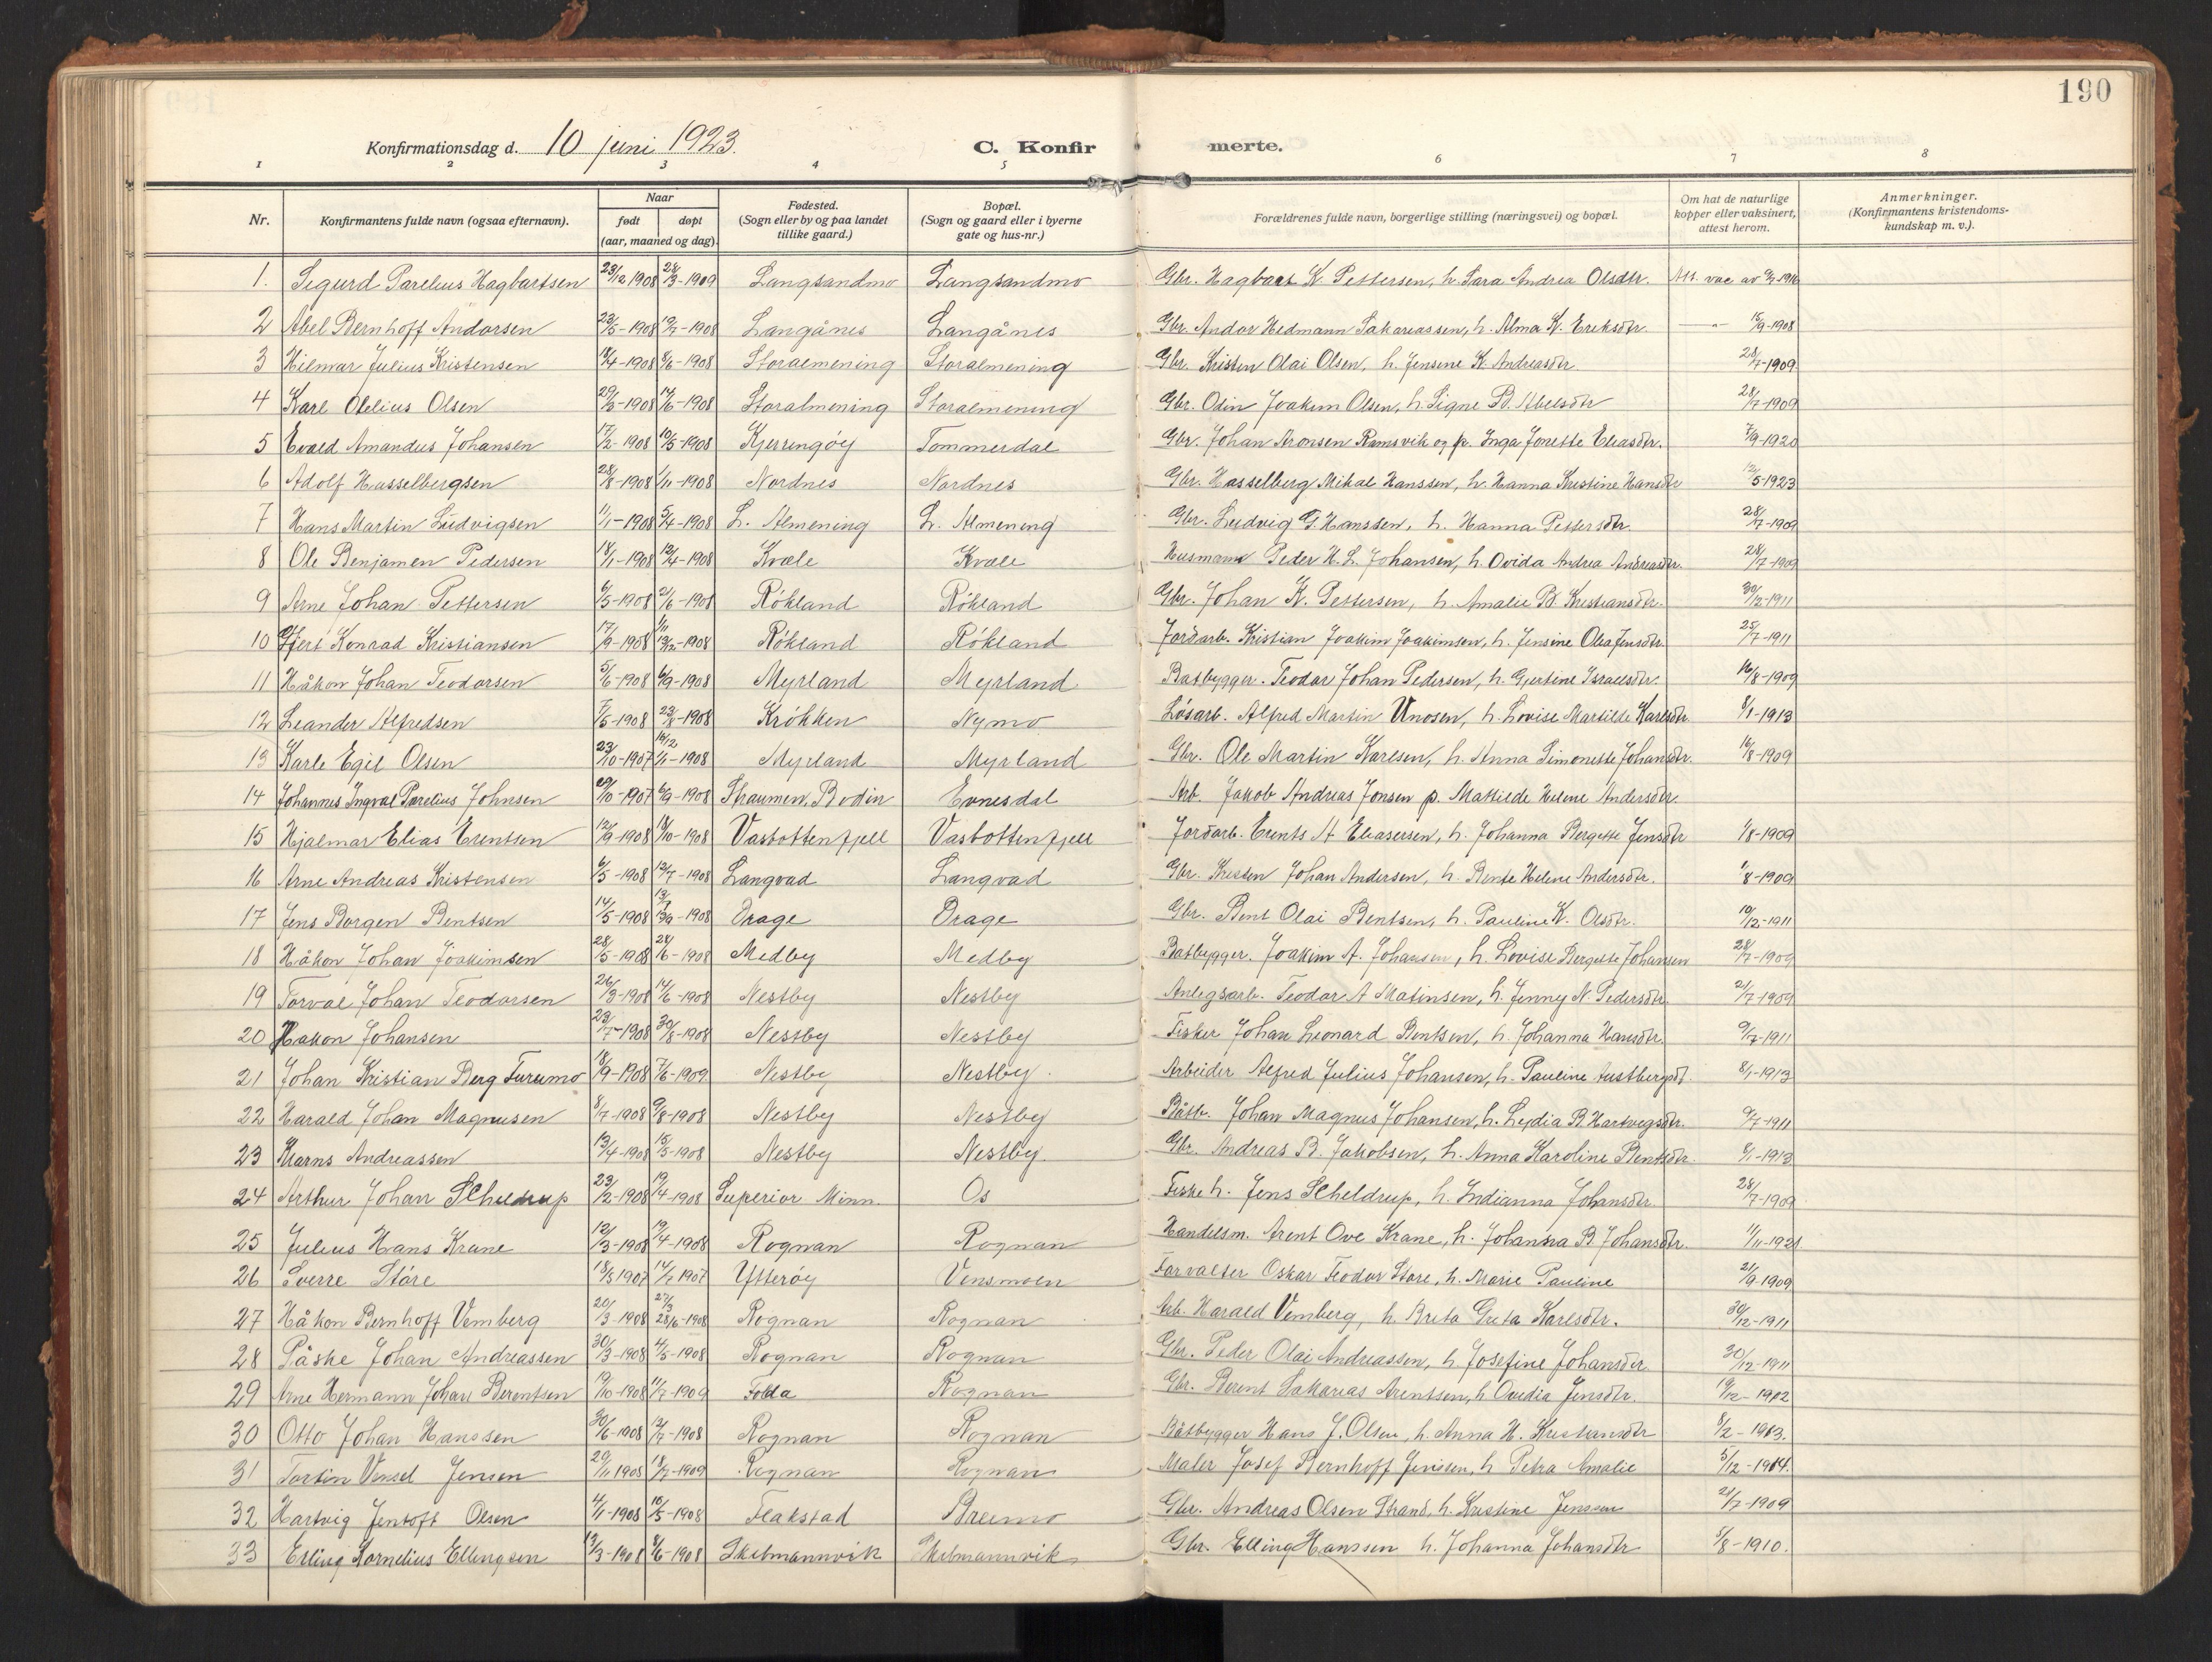 190
Konfirmationsdag d. 10 juni 1923.
C. Konfirmerte.
1 2 3 4 5 6 7 8
Nr. Konfirmantens fulde navn (ogsaa efternavn). Naar født døpt (aar, maaned og dag). Fødested. (Sogn eller by og paa landet tillike gaard.) Bopæl. (Sogn og gaard eller i byerne gate og hus-nr.) Forældrenes fulde navn, borgerlige stilling (næringsvei) og bopæl. Om hat de naturlige kopper eller vaksinert, attest herom. Anmerkninger. (Konfirmantens kristendoms-kundskap m. v.).
1. Sigurd Parelius Hagbartsen 23/12 1908 28/3-1909 Langsandmo Langsandmo Gbr. Hagbart K. Pettersen, h. Sara Andrea Olsdtr. Att. vac av
2 Abel Bernhoff Andorsen 23/5-1908 19/7-1908 Langånes Langånes Gbr. Andor Hedmann Sakariassen, h. Alma K. Eriksdtr. -"- 15/9-1908
3 Hilmar Julius Kristensen 18/4-1908 8/6-1908 Storalmening Storalmening Gbr. Kristen Olai Olsen, h. Jensine K. Andreasdtr 28/7-1909
4 Karl Olelius Olsen 29/3-1908 14/6-1908 Storalmening Storalmening Gbr. Odin Joakim Olsen, h. Signe B. Abelsdtr 28/7-1909
5 Evald Amandus Johansen 17/2-1908 10/5-1908 Kjerringöy Tommerdal Gbr. Johan Aronsen Ramsvik og p. Inga Jonette Eliasdtr. 7/9-1920
6 Adolf Hasselbergsen 28/8-1908 1/11-1908 Nordnes Nordnes Gbr. Hasselberg Mikal Hanssen, h. Hanna Kristine Hansdtr 12/5-1923
7 Hans Martin Ludvigsen 11/1-1908 5/4-1908 L. Almening L. Almening Gbr. Ludvig G. Hanssen, h. Hanna Pettersdtr. 28/7-1909
8 Ole Benjamen Pedersen 18/1-1908 12/4-1908 Kvæle Kvæle Husmann Peder H. L. Johansen, h. Ovida Andrea Andreasdtr. 28/7-1909
9 Arne Johan Pettersen 6/5-1908 21/6-1908 Rökland Rökland Gbr. Johan K. Pettersen, h. Amalie B. Kristiansdtr. 30/12-1911
10 Konrad Kristiansen 17/9-1908 1/11 13/12-1908 Rökland Rökland Jordarb. Kristian Joakim Joakimsen, h. Jensine Olea Jensdtr. 25/7-1911
11 Håkon Johan Teodorsen 5/6-1908 6/9-1908 Myrland Myrland Baatbygger. Teodor Johan Pedersen, h. Gjertine Israelsdtr. 16/8-1909
12 Leander Alfredsen 7/5-1908 23/8-1908 Krökken Nymo Lösarb. Alfred Martin Unosen, h. Lovise Martilde Karlsdtr. 8/1-1913
13 Karle Egil Olsen 23/10-1907 1/11-1908 Myrland Myrland Gbr. Ole Martin Karlsen, h. Anna Simonette Johansdtr. 16/8-1909
14 Johannes Ingval Parelius Johnsen 29/10-1907 6/9-1908 Straumen, Bodin Evnesdal Arb. Jakob Andreas Jonsen p. Matilde Helene Andersdtr.
15 Hjalmar Elias Erentsen 12/9-1908 18/10-1908 Vasbottenfjell Vasbottenfjell Jordarb. Erents A Eliasersen, h. Johanna Bergette Jensdtr 1/8-1909
16 Arne Andreas Kristensen 6/5-1908 12/7-1908 Langvad Langvad Gbr. Kristen Johan Andersen, h. Bente Helene Andersdtr. 1/8-1909
17 Jens Borgen Bentsen 14/5-1908 Drage Drage Gbr. Bent Olai Bentsen, h. Pauline K. Olsdtr. 10/12-1911
18 Håkon Johan Joakimsen 28/5-1908 28/6-1908 Medby Medby Baatbygger. Joakim A. Johansen, h. Lovise Bergette Johansen 28/7-1909
19 Torval Johan Teodorsen 26/3-1908 14/6-1908 Nestby Nestby Anlegsarb. Teodor A Matinsen, h. Jenny N. Pedersdtr. 21/7-1909
20 Hakon Johansen 23/7-1908 30/8-1908 Nestby Nestby Fisker Johan Leonard Bentsen, h. Johanna Hansdtr. 9/7-1911
21 Johan Kristian Berg Furumo 18/9-1908 7/6-1909 Nestby Nestby Arbeider Alfred Julius Johansen, h. Pauline Austbergsdt. 8/1-1913
22 Harald Johan Magnusen 8/7-1908 9/8-1908 Nestby Nestby Båtb. Johan Magnus Johansen, h. Lydia B. Hartvigsdtr. 9/7-1911
23 Marns Andreassen 13/4-1908 15/5-1908 Nestby Nestby Gbr. Andreas B. Jakobsen, h. Anna Karoline Bentsdtr. 8/1-1913
24 Arthur Johan Scheldrup 23/2-1908 19/4-1908 Superior Minn. Os Fiske h. Jens Scheldrup, h. Indianna Johansdtr. 28/7-1909
25 Julius Hans Krane 12/3-1908 19/4-1908 Rognan Rognan Handelsm. Arent Ove Krane, h. Johanna B. Johansdtr. 11/11-1921
26 Sverre Störe 18/5 1907 14/7 1907 Ytteröy Vensmoen Forvalter Oskar Teodor Störe, h. Marie Pauline 21/9-1909
27 Håkon Bernhoff Vemberg 20/3-1908 27/3 28/6-1908 Rognan Rognan Arb. Harald Vemberg, h. Brita Greta Karlsdtr. 30/12-1911
28 Påske Johan Andreassen 30/3-1908 4/5-1908 Rognan Rognan Gbr. Peder Olai Andreassen, h. Josefine Johansdtr 30/12-1911
29 Arne Hermann Johan Berentsen 19/10-1908 11/7-1909 Folda Rognan Gbr. Berent Sakarias Arentsen, h. Ovedia Jensdtr. 19/12-1912
30 Otto Johan Hanssen 30/6-1908 12/7-1908 Rognan Rognan Båtbygger Hans J. Olsen, h. Anna H. Kristiansdtr 8/2-1913.
31 Torstin Vensel Jensen 29/11 1908 18/7-1909 Rognan Rognan Maler Josef Bernhoff Jenssen, h. Petra Amalie 5/12-1914.
32 Hartvig Jentoft Olsen 4/1-1908 10/5-1908 Flakstad Breimo Gbr. Andreas Olsen Strand, h. Kristine Jensen 21/7-1909
33 Erling Kornelius Ellingsen 13/3-1908 8/6-1908 Skelmannvik Skelmannvik Gbr. Elling Hanssen h. Johanna Johansdtr 5/8-1910.